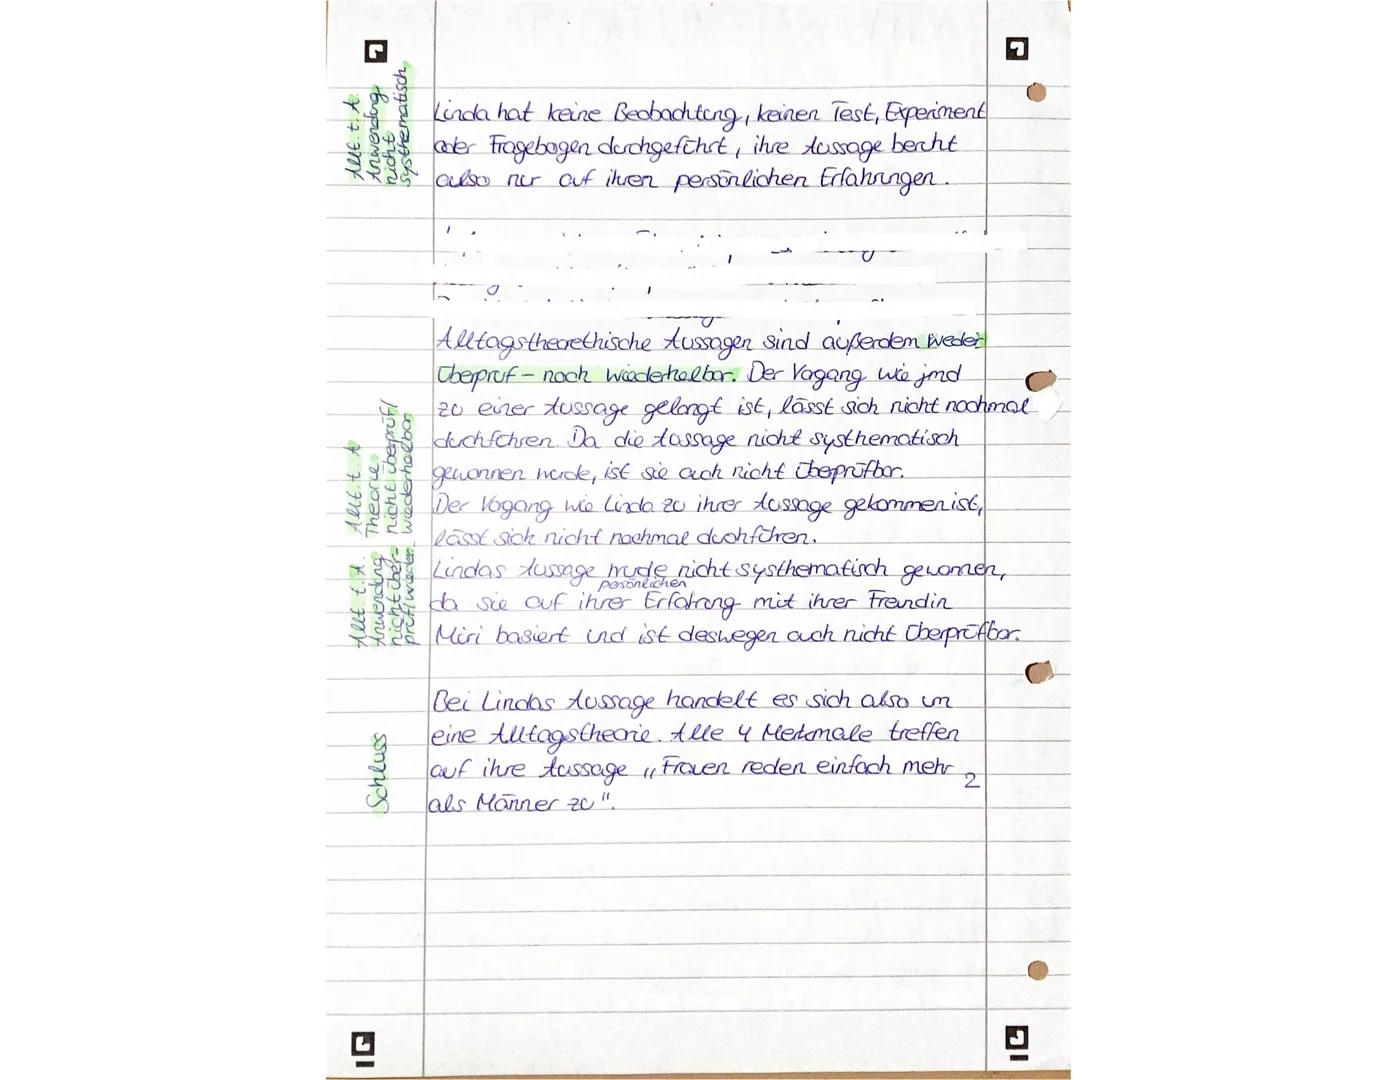 Allt. t. A.
Anwendung
nicht
systhematisch
Linda hat keine Beobachtung, keinen Test, Experiment
oder Fragebogen durchgeführt, ihre Aussage beruht
also nur auf ihren persönlichen Erfahrungen.
Alltagstheorethische Aussagen sind außerdem weder
überpruf- noch wiederholbar. Der Vorgang wie jmd
zu einer Aussage gelangt ist, lässt sich nicht nochmal
durchführen. Da die Aussage nicht systhematisch
gewonnen wurde, ist sie auch nicht überprüfbar.
Allt. t. A
Theorie
nicht überprüf/
wiederholbar
Der Vorgang wie Linda zu ihrer Aussage gekommen ist,
lässt sich nicht nochmal duchführen.
Lindas Aussage wurde nicht systhematisch gewonnen,
persönlichen
da sie auf ihrer Erfahrung mit ihrer Freundin
Miri basiert und ist deswegen auch nicht überprüfbar.
Allt t. A.
Anwendung
nicht über-
prüf/wieder.
Bei Lindas Aussage handelt es sich also um
eine Alltagstheorie. Alle 4 Merkmale treffen
auf ihre Aussage „Frauen reden einfach mehr
als Männer zu".
2
Schluss